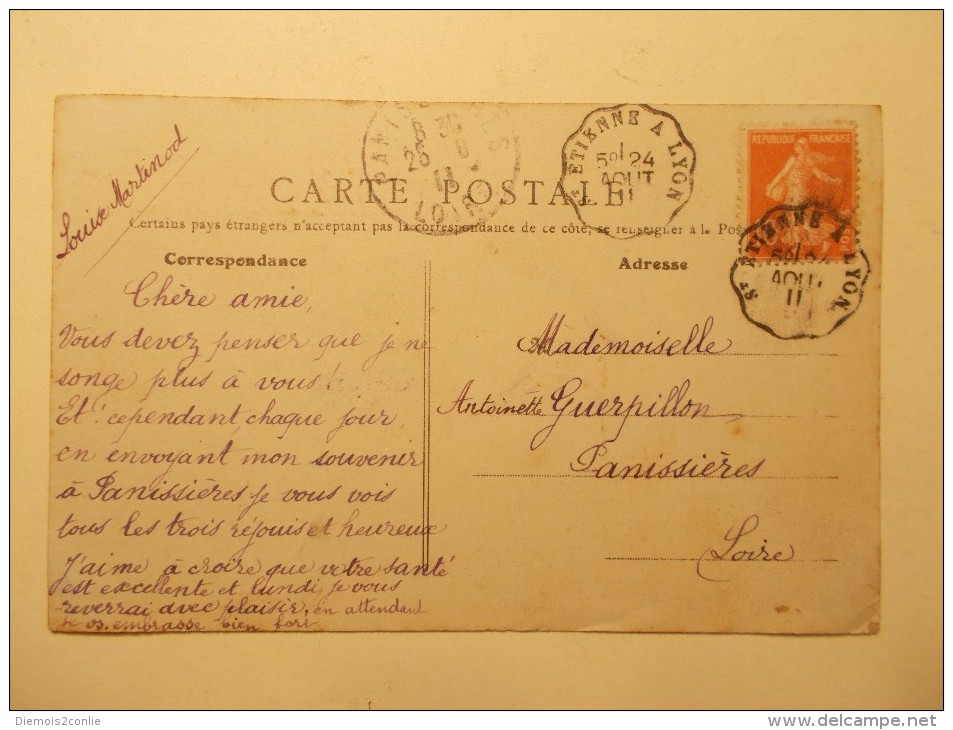 Louise Martinod
CARTE POSTALE
Certains pays étrangers n'acceptant pas la correspondance de ce côté, se renseigner à la Pos
Correspondance
Chère amie,
Vous devez penser que je ne
songe plus à vous
Et cependant, chaque jour,
en envoyant mon souvenir
à Panissières je vous vois
tous les trois réjouis et heureux
J'aime à croire que votre santé
est excellente et lundi, je vous
reverrai avec plaisir, en attendant
je vs. embrasse bien fort.
Adresse
Mademoiselle
Antoinette Guerpillon
Panissières
Loire
LOIRE
ST ETIENNE A LYON
24
AOUT
11
REPUBLIQUE FRANÇAISE
10
ST ETIENNE A LYON
24
AOUT
11
Diemois2conlie
www.delcampe.net